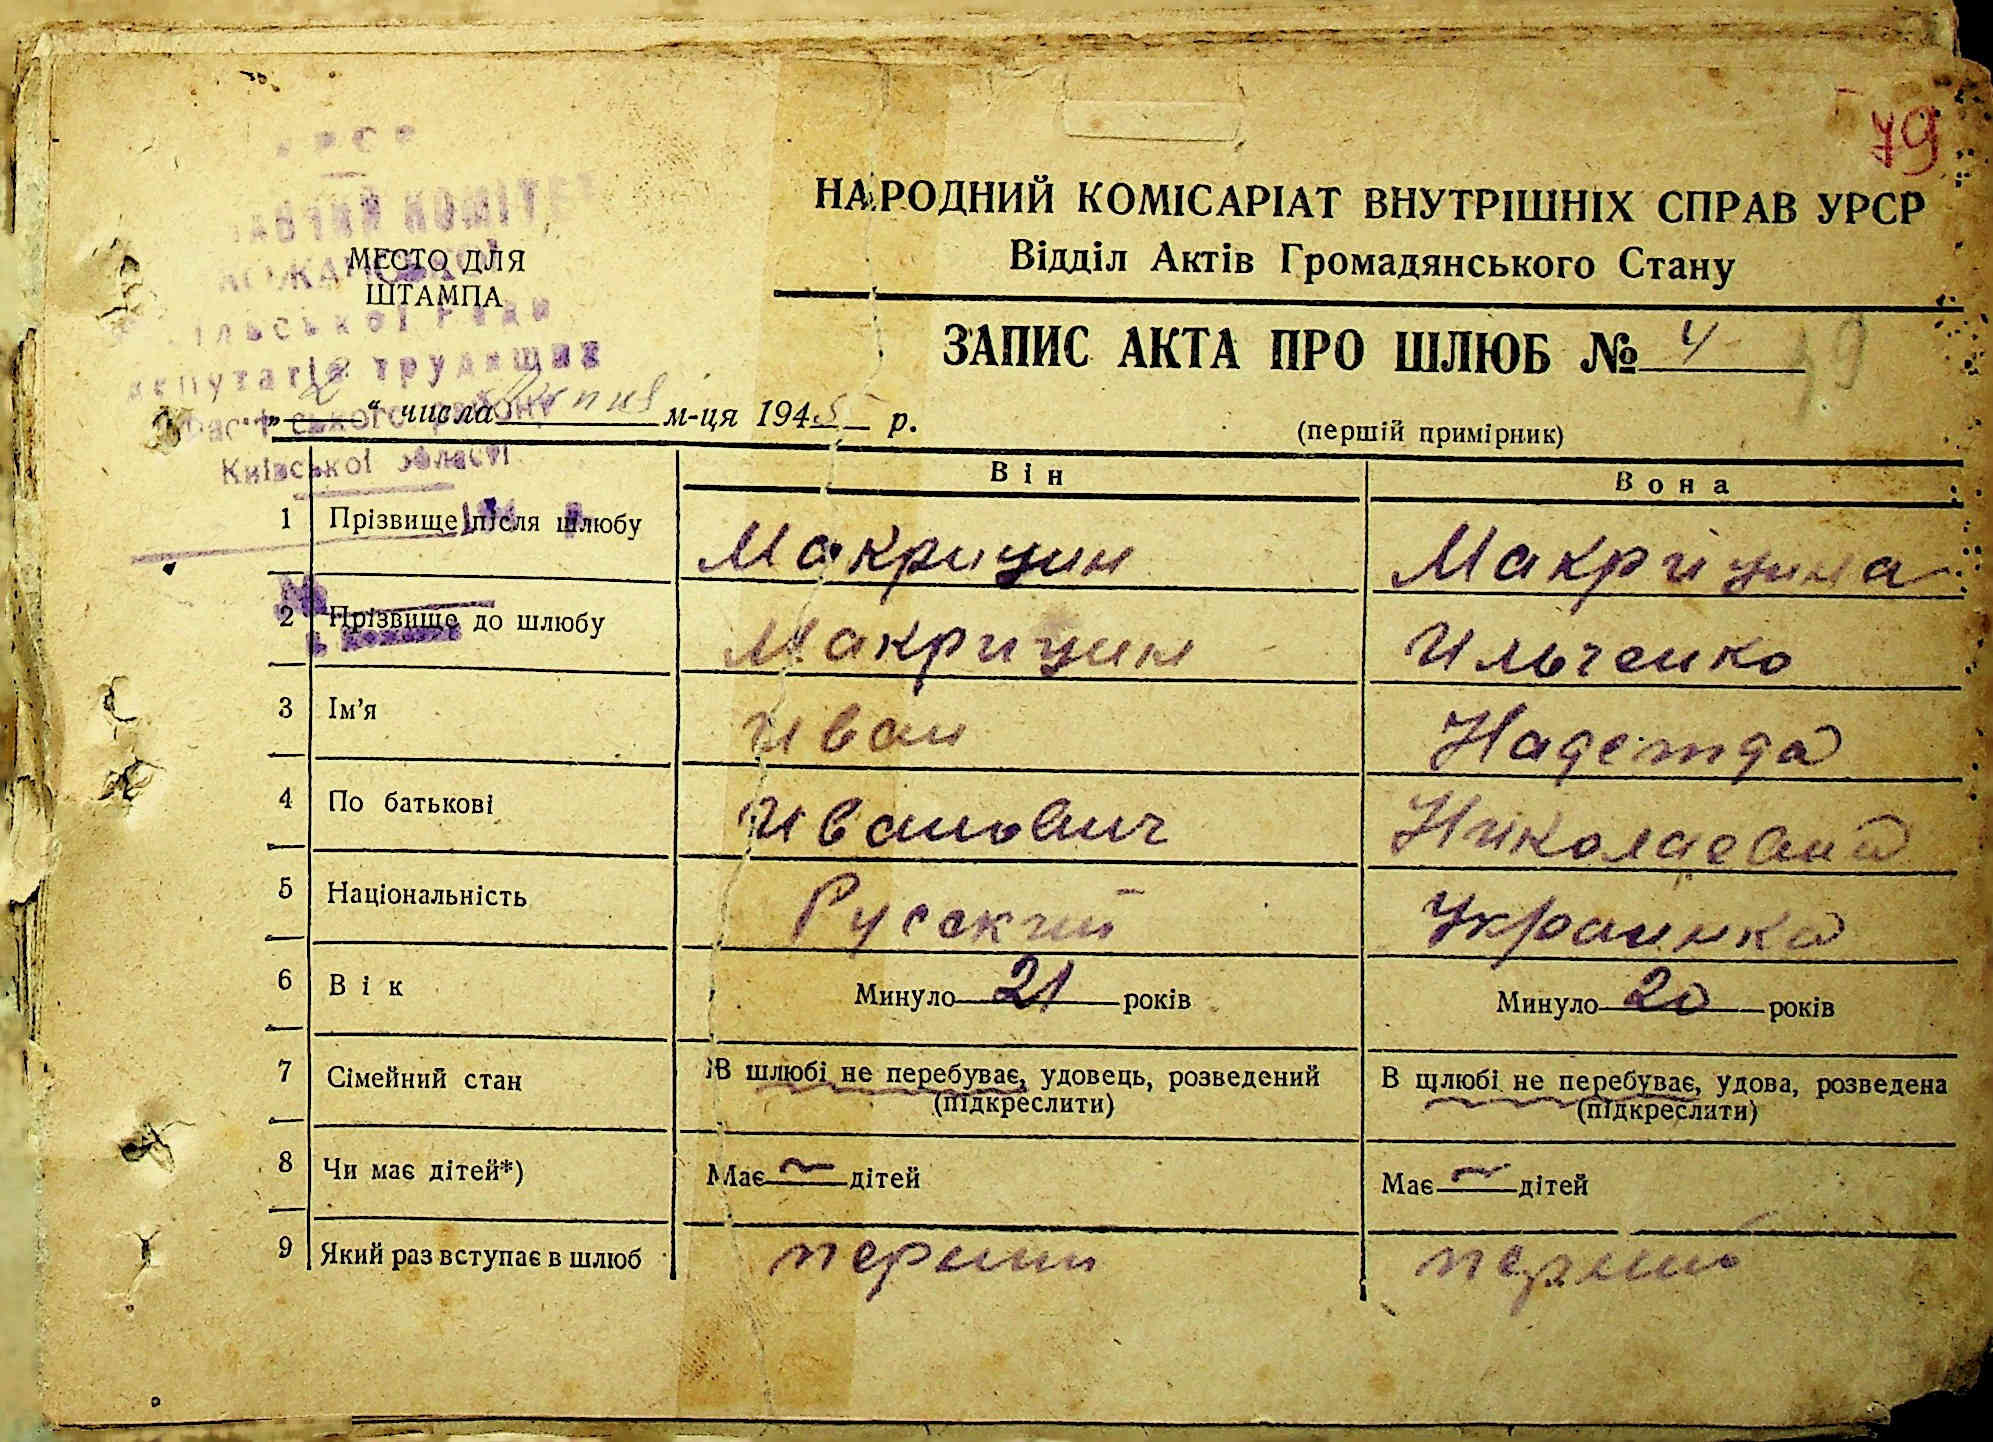 79
НАРОДНИЙ КОМІСАРІАТ ВНУТРІШНІХ СПРАВ УРСР
Відділ Актів Громадянського Стану
МЕСТО ДЛЯ
ШТАМПА
КОМІТЕТ
Ради
депутатів трудящих
району
Київської області
ЗАПИС АКТА ПРО ШЛЮБ № 4
79
„ 2 “ числа м-ця 1945 р.
(першій примірник)
Він Вона
1 Прізвище після шлюбу Макрицин Макрицина
2 Прізвище до шлюбу Макрицин Ильченко
3 Ім'я Иван Надежда
4 По батькові Иванович Николаевна
5 Національність Русский Украинка
6 Вік Минуло 21 років Минуло 20 років
7 Сімейний стан В шлюбі не перебуває, удовець, розведений В шлюбі не перебуває, удова, розведена
(підкреслити) (підкреслити)
8 Чи має дітей*) Має — дітей Має — дітей
9 Який раз вступає в шлюб перший перший